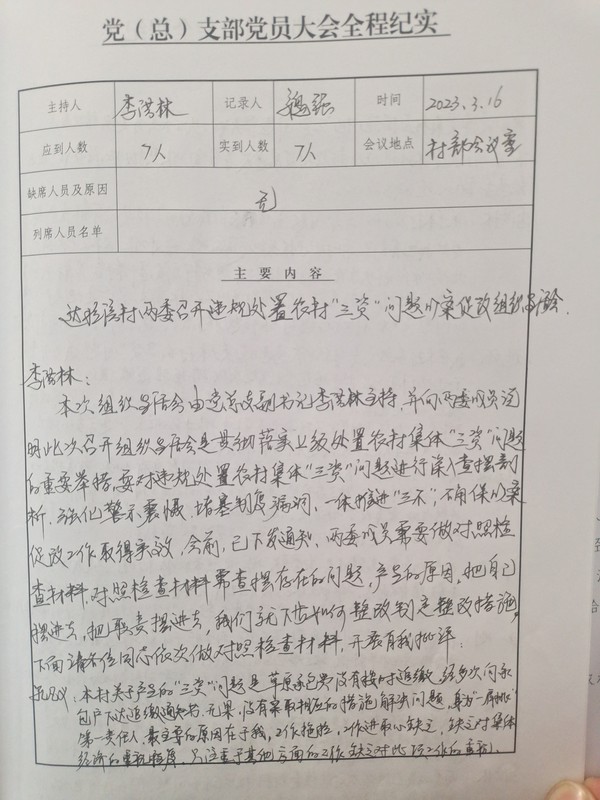 党（总）支部党员大会全程纪实
主持人 李洪林 记录人 魏强 时间 2023.3.16
应到人数 7人 实到人数 7人 会议地点 村部会议室
缺席人员及原因 无
列席人员名单
主要内容
村两委召开违规处置农村“三资”问题以案促改组织生活会.
李洪林:
本次组织生活会由党总支副书记李洪林主持,并向两委成员说
明此次召开组织生活会是贯彻落实上级处置农村集体“三资”问题
的重要举措,要对违规处置农村集体“三资”问题进行深入查摆剖
析,强化警示震慑,堵塞制度漏洞,一体推进“三不”,确保以案
促改工作取得实效,会前,已下发通知,两委成员需要做对照检
查材料,对照检查材料需查摆存在的问题,产生的原因,把自己
摆进去,把职责摆进去,我们就下步如何整改制定整改措施,
下面请各位同志依次做对照检查材料,开展自我批评.
本村关于产生的“三资”问题是草原承包费没有按时追缴,经多次向承
包户下达追缴通知书,无果,没有采取相应的措施解决问题,身为一肩挑
第一责任人,最主要的原因在于我,工作拖拉,工作进取心缺乏,缺乏对集体
经济的重视程度,只注重于其他方面的工作,缺乏对此项工作的重视.